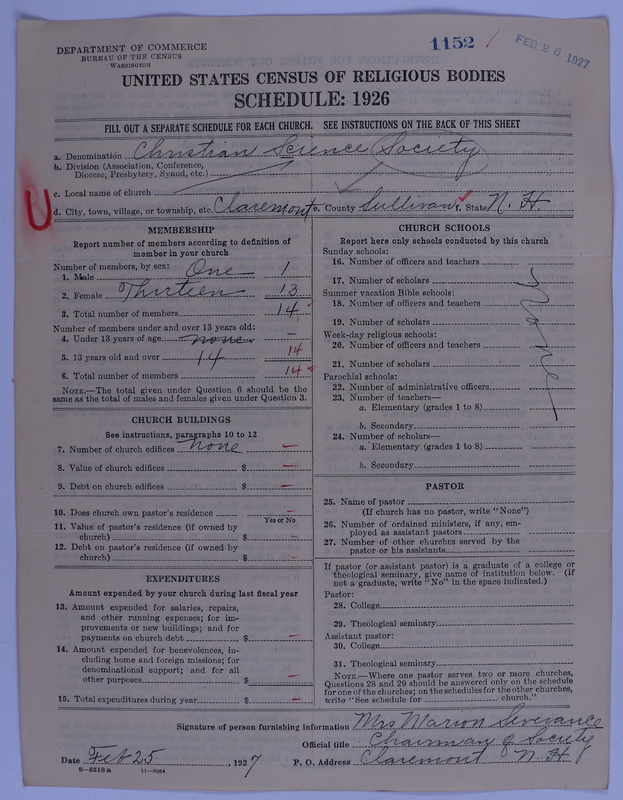 DEPARTMENT OF COMMERCE
BUREAU OF THE CENSUS
WASHINGTON
1152 /
FEB 26 1927
UNITED STATES CENSUS OF RELIGIOUS BODIES
SCHEDULE: 1926
FILL OUT A SEPARATE SCHEDULE FOR EACH CHURCH. SEE INSTRUCTIONS ON THE BACK OF THIS SHEET
a. Denomination Christian Science Society
b. Division (Association, Conference,
Diocese, Presbytery, Synod, etc.)
c. Local name of church
U
d. City, town, village, or township, etc. Claremont e. County Sullivan f. State N. H.
MEMBERSHIP
Report number of members according to definition of
member in your church
Number of members, by sex:
1. Male One 1
2. Female Thirteen 13
3. Total number of members 14
Number of members under and over 13 years old:
4. Under 13 years of age none —
5. 13 years old and over 14 14
6. Total number of members 14
NOTE.—The total given under Question 6 should be the
same as the total of males and females given under Question 3.
CHURCH BUILDINGS
See instructions, paragraphs 10 to 12
7. Number of church edifices None —
8. Value of church edifices $ —
9. Debt on church edifices $ —
10. Does church own pastor's residence —
Yes or No
11. Value of pastor's residence (if owned by
church) $ —
12. Debt on pastor's residence (if owned by
church) $ —
EXPENDITURES
Amount expended by your church during last fiscal year
13. Amount expended for salaries, repairs,
and other running expenses; for im-
provements or new buildings; and for
payments on church debt $ —
14. Amount expended for benevolences, in-
cluding home and foreign missions; for
denominational support; and for all
other purposes $ —
15. Total expenditures during year $ —
CHURCH SCHOOLS
Report here only schools conducted by this church
Sunday schools:
16. Number of officers and teachers
17. Number of scholars
Summer vacation Bible schools:
18. Number of officers and teachers
19. Number of scholars
Week-day religious schools:
20. Number of officers and teachers
21. Number of scholars
Parochial schools:
22. Number of administrative officers
23. Number of teachers—
a. Elementary (grades 1 to 8)
b. Secondary
24. Number of scholars—
a. Elementary (grades 1 to 8)
b. Secondary
None
PASTOR
25. Name of pastor
(If church has no pastor, write "None")
26. Number of ordained ministers, if any, em-
ployed as assistant pastors
27. Number of other churches served by the
pastor or his assistants
If pastor (or assistant pastor) is a graduate of a college or
theological seminary, give name of institution below. (If
not a graduate, write "No" in the space indicated.)
Pastor:
28. College
29. Theological seminary
Assistant pastor:
30. College
31. Theological seminary
NOTE.—Where one pastor serves two or more churches,
Questions 28 and 29 should be answered only on the schedule
for one of the churches; on the schedules for the other churches,
write "See schedule for church."
Signature of person furnishing information Mrs Marion Severance
Official title Chairman of Society
Date Feb 25, 1927 P. O. Address Claremont N. H.
8—5518a 11—9054